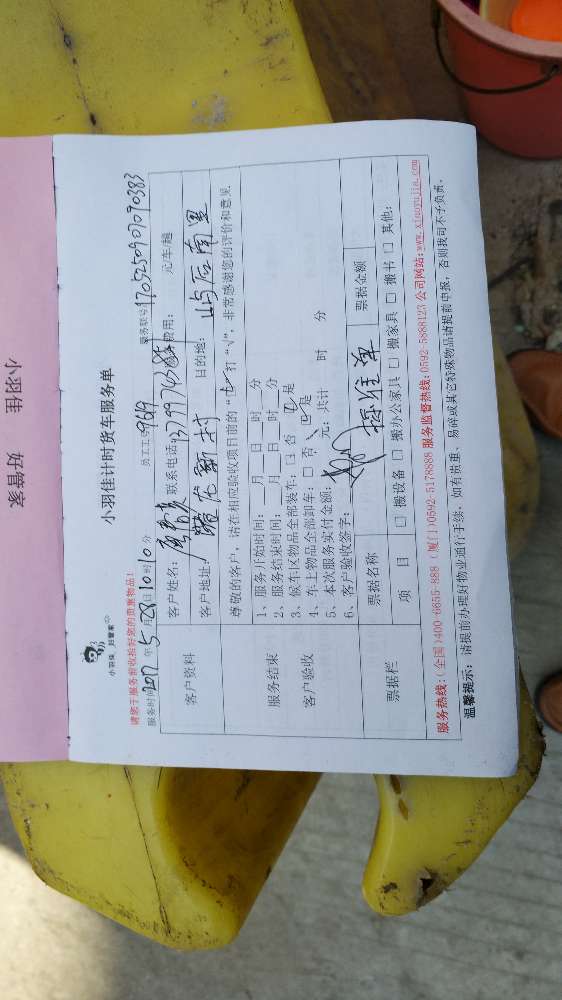 小羽佳
好管家
小羽佳 好管家
小羽佳计时货车服务单
请您于服务前收拾好您的贵重物品!
服务时间:2017年5月28日10时10分 员工工号:9619 服务联号:1705250907090383
客户资料
客户姓名: 联系电话: 费用: 元车/趟
客户地址: 新村 目的地: 屿后南里
服务结束
客户验收
尊敬的客户,请在相应验收项目前的“□”打“√”,非常感谢您的评价和意见
1、服务开始时间:__月__日__时__分
2、服务结束时间:__月__日__时__分
3、候车区物品全部装车:□否 ☑是
4、车上物品全部卸车:□否 ☑是
5、本次服务实付金额: 元;共计 时 分
6、客户验收签字:
票据栏
票据名称 票据金额
项 目 □搬设备 □搬办公家具 □搬家具 □搬书 □其他:
服务热线:(全国)400-6655-888 (厦门)0592-5178888 服务监督热线:0592-5888123 公司网站:www.xiaoyujia.com
温馨提示: 请提前办理好物业通行手续, 如有贵重、易碎或其它特殊物品请提前申报, 否则我司不予负责。